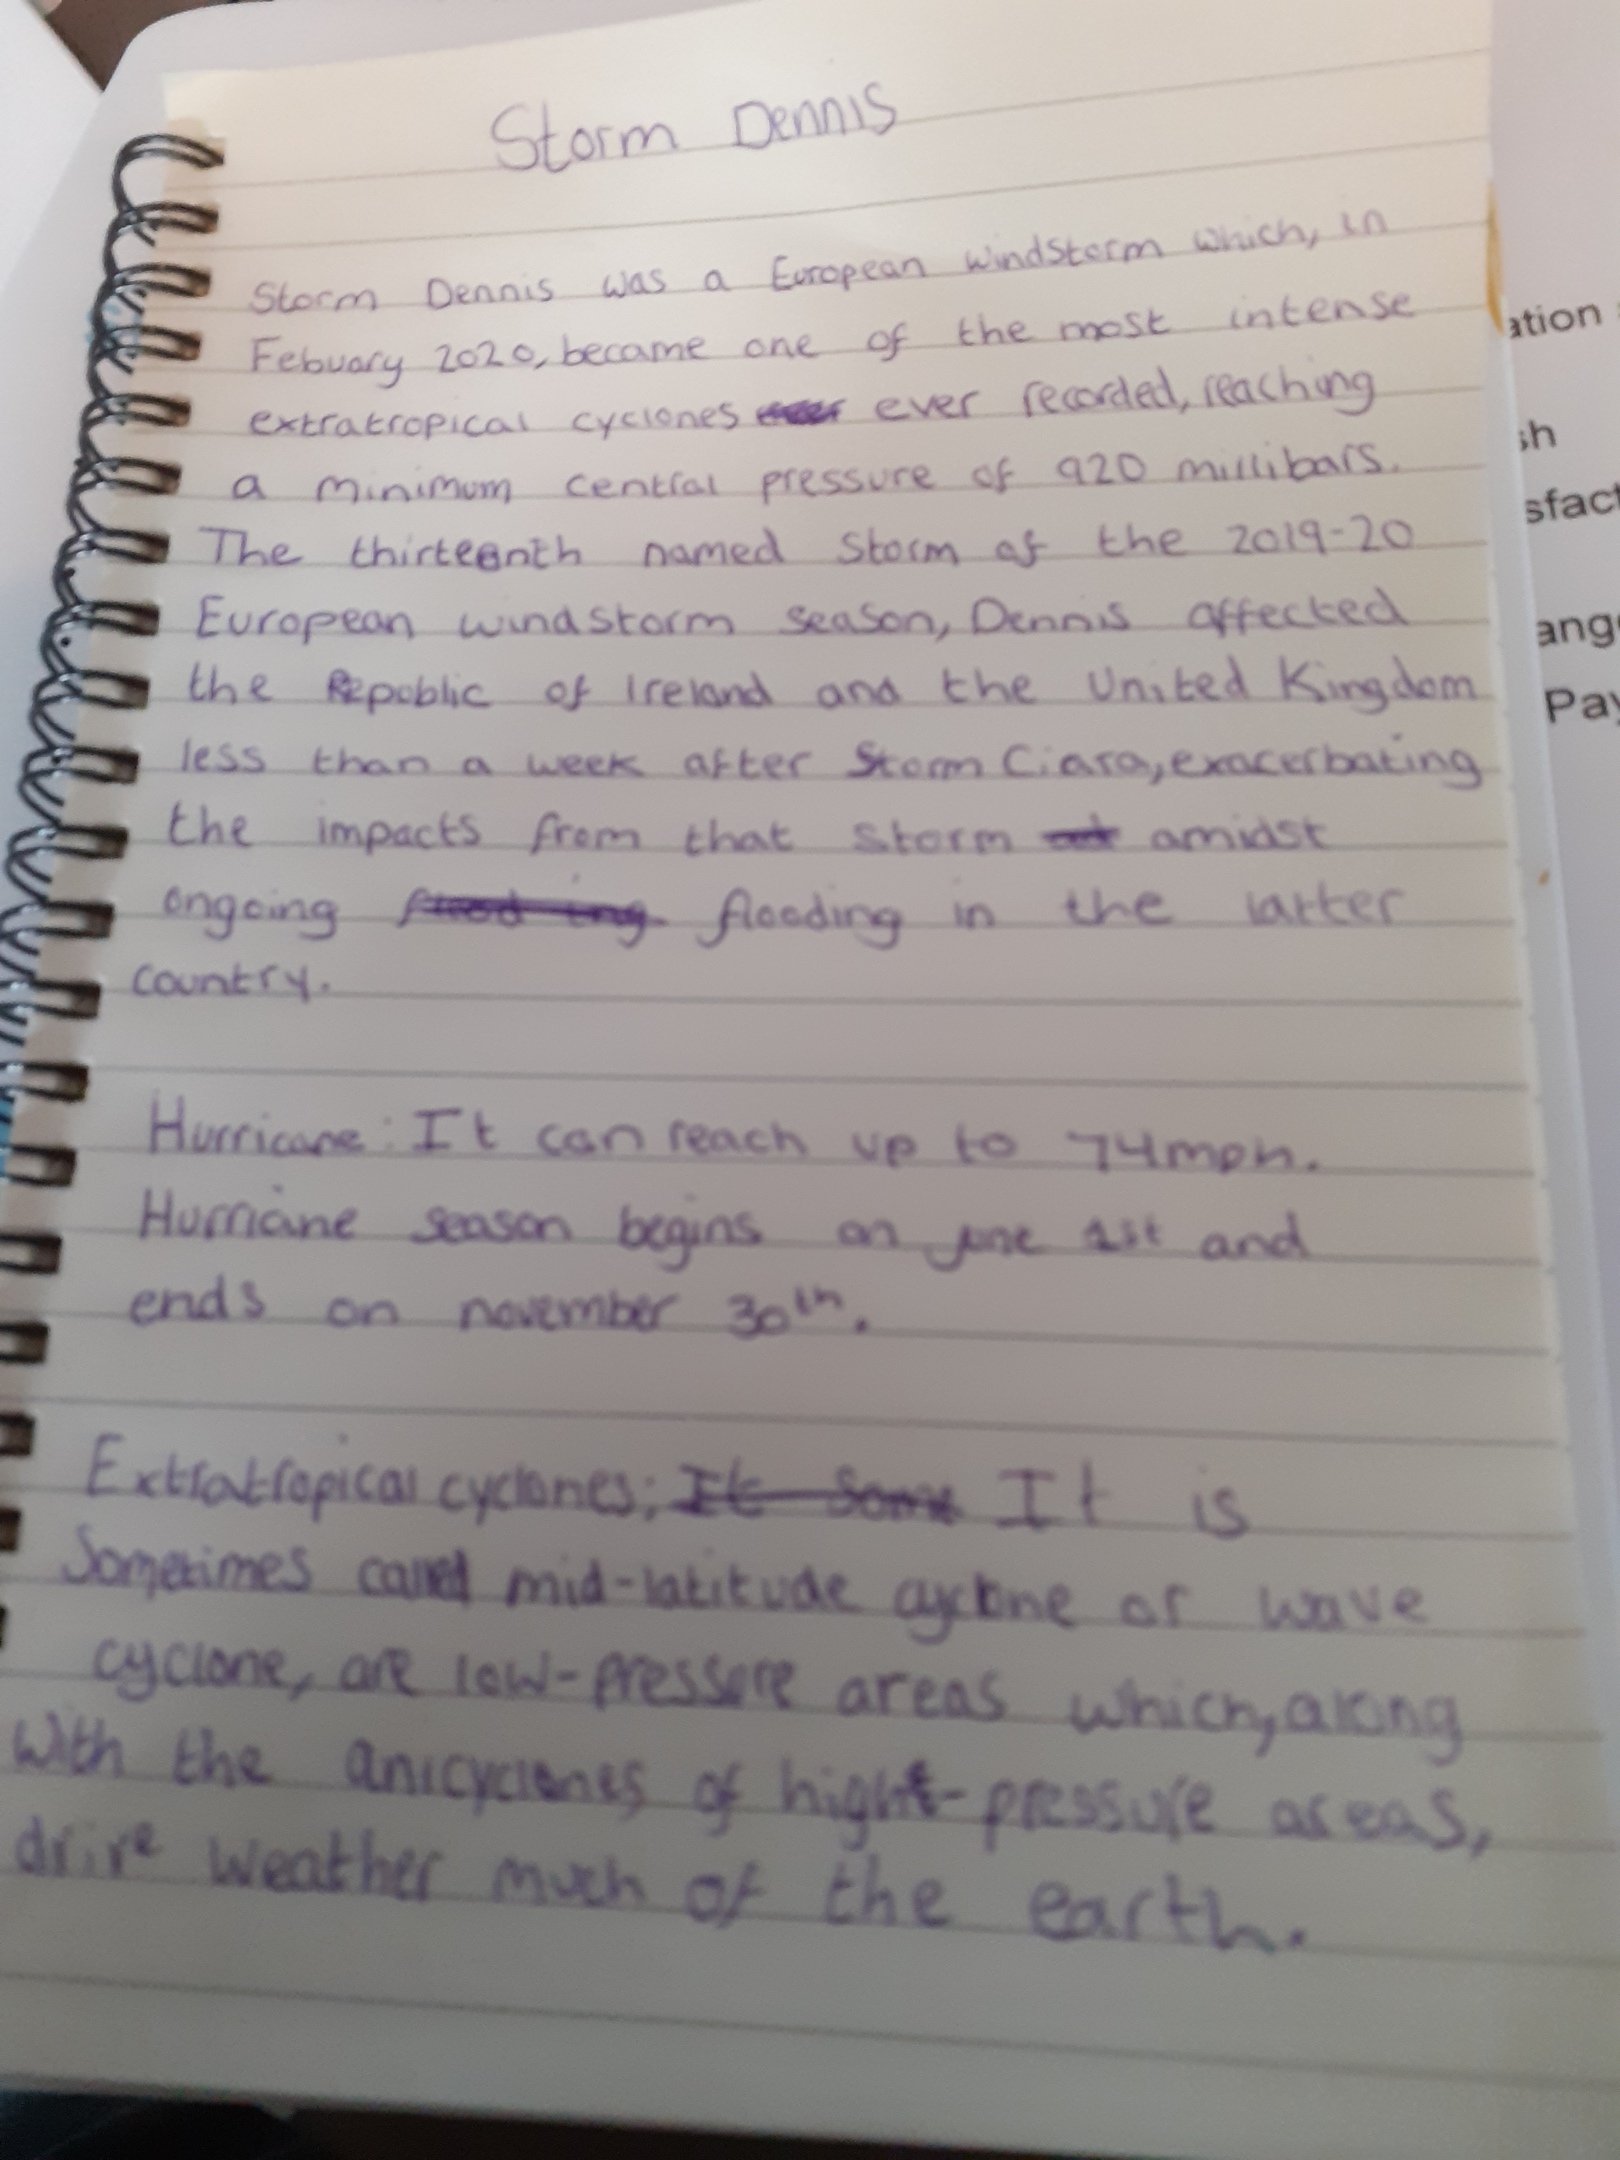 Storm Dennis
Storm Dennis was a European windstorm which, in
Febuary 2020, became one of the most intense
extratropical cyclones ever recorded, reaching
a minimum central pressure of 920 millibars.
The thirteenth named storm of the 2019-20
European windstorm season, Dennis affected
the Republic of Ireland and the United Kingdom
less than a week after Storm Ciara, exacerbating
the impacts from that storm amidst
ongoing flooding in the latter
country.
Hurricane: It can reach up to 74mph.
Hurricane season begins on june 1st and
ends on november 30th.
Extratropical cyclones; It is
Sometimes called mid-latitude cyclone or wave
cyclone, are low-pressure areas which, along
With the anicyclones of high-pressure areas,
drive weather much of the earth.
ation
sh
sfact
ang
Pay